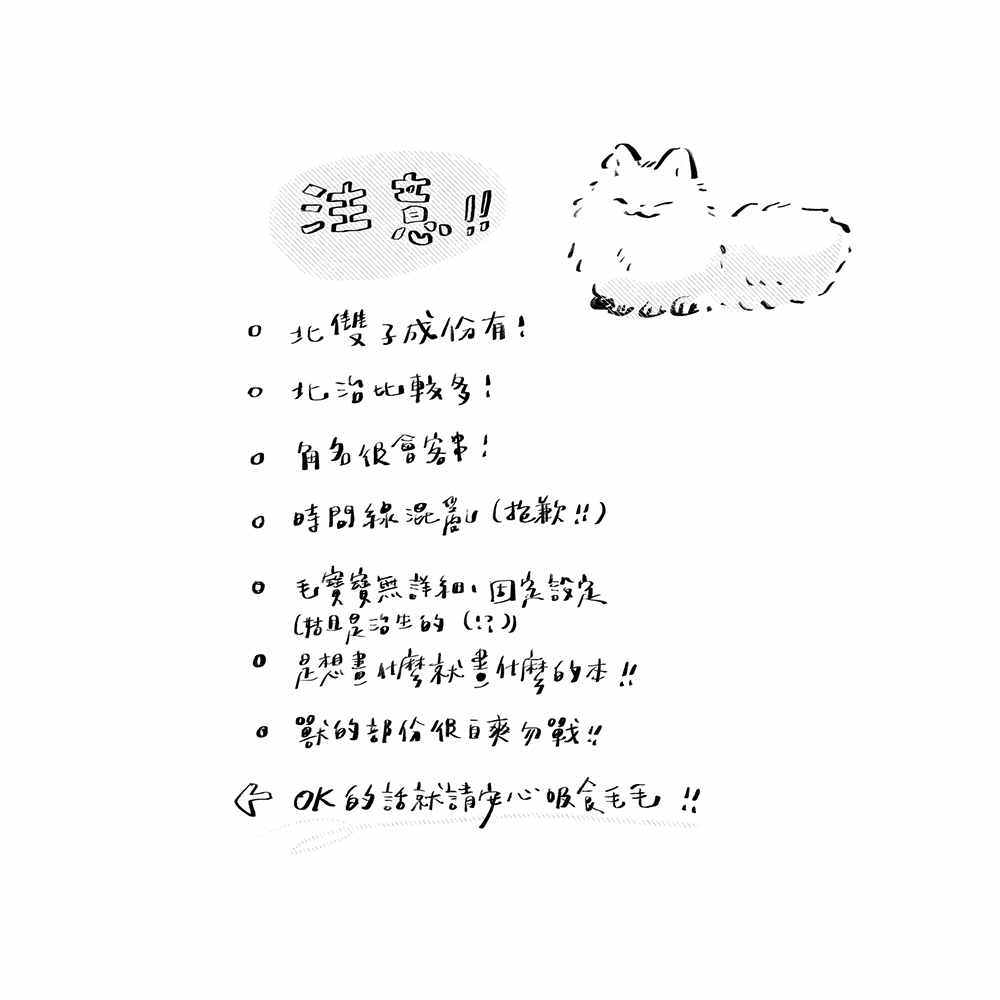 注意!!
北雙子成份有!
北治比較多!
角名很會客串!
時間線混亂(抱歉!!)
毛寶寶無詳細、固定設定
(姑且是治生的(!?))
是想畫什麼就畫什麼的本!!
獸的部份很自爽勿戰!!
OK的話就請安心吸食毛毛!!